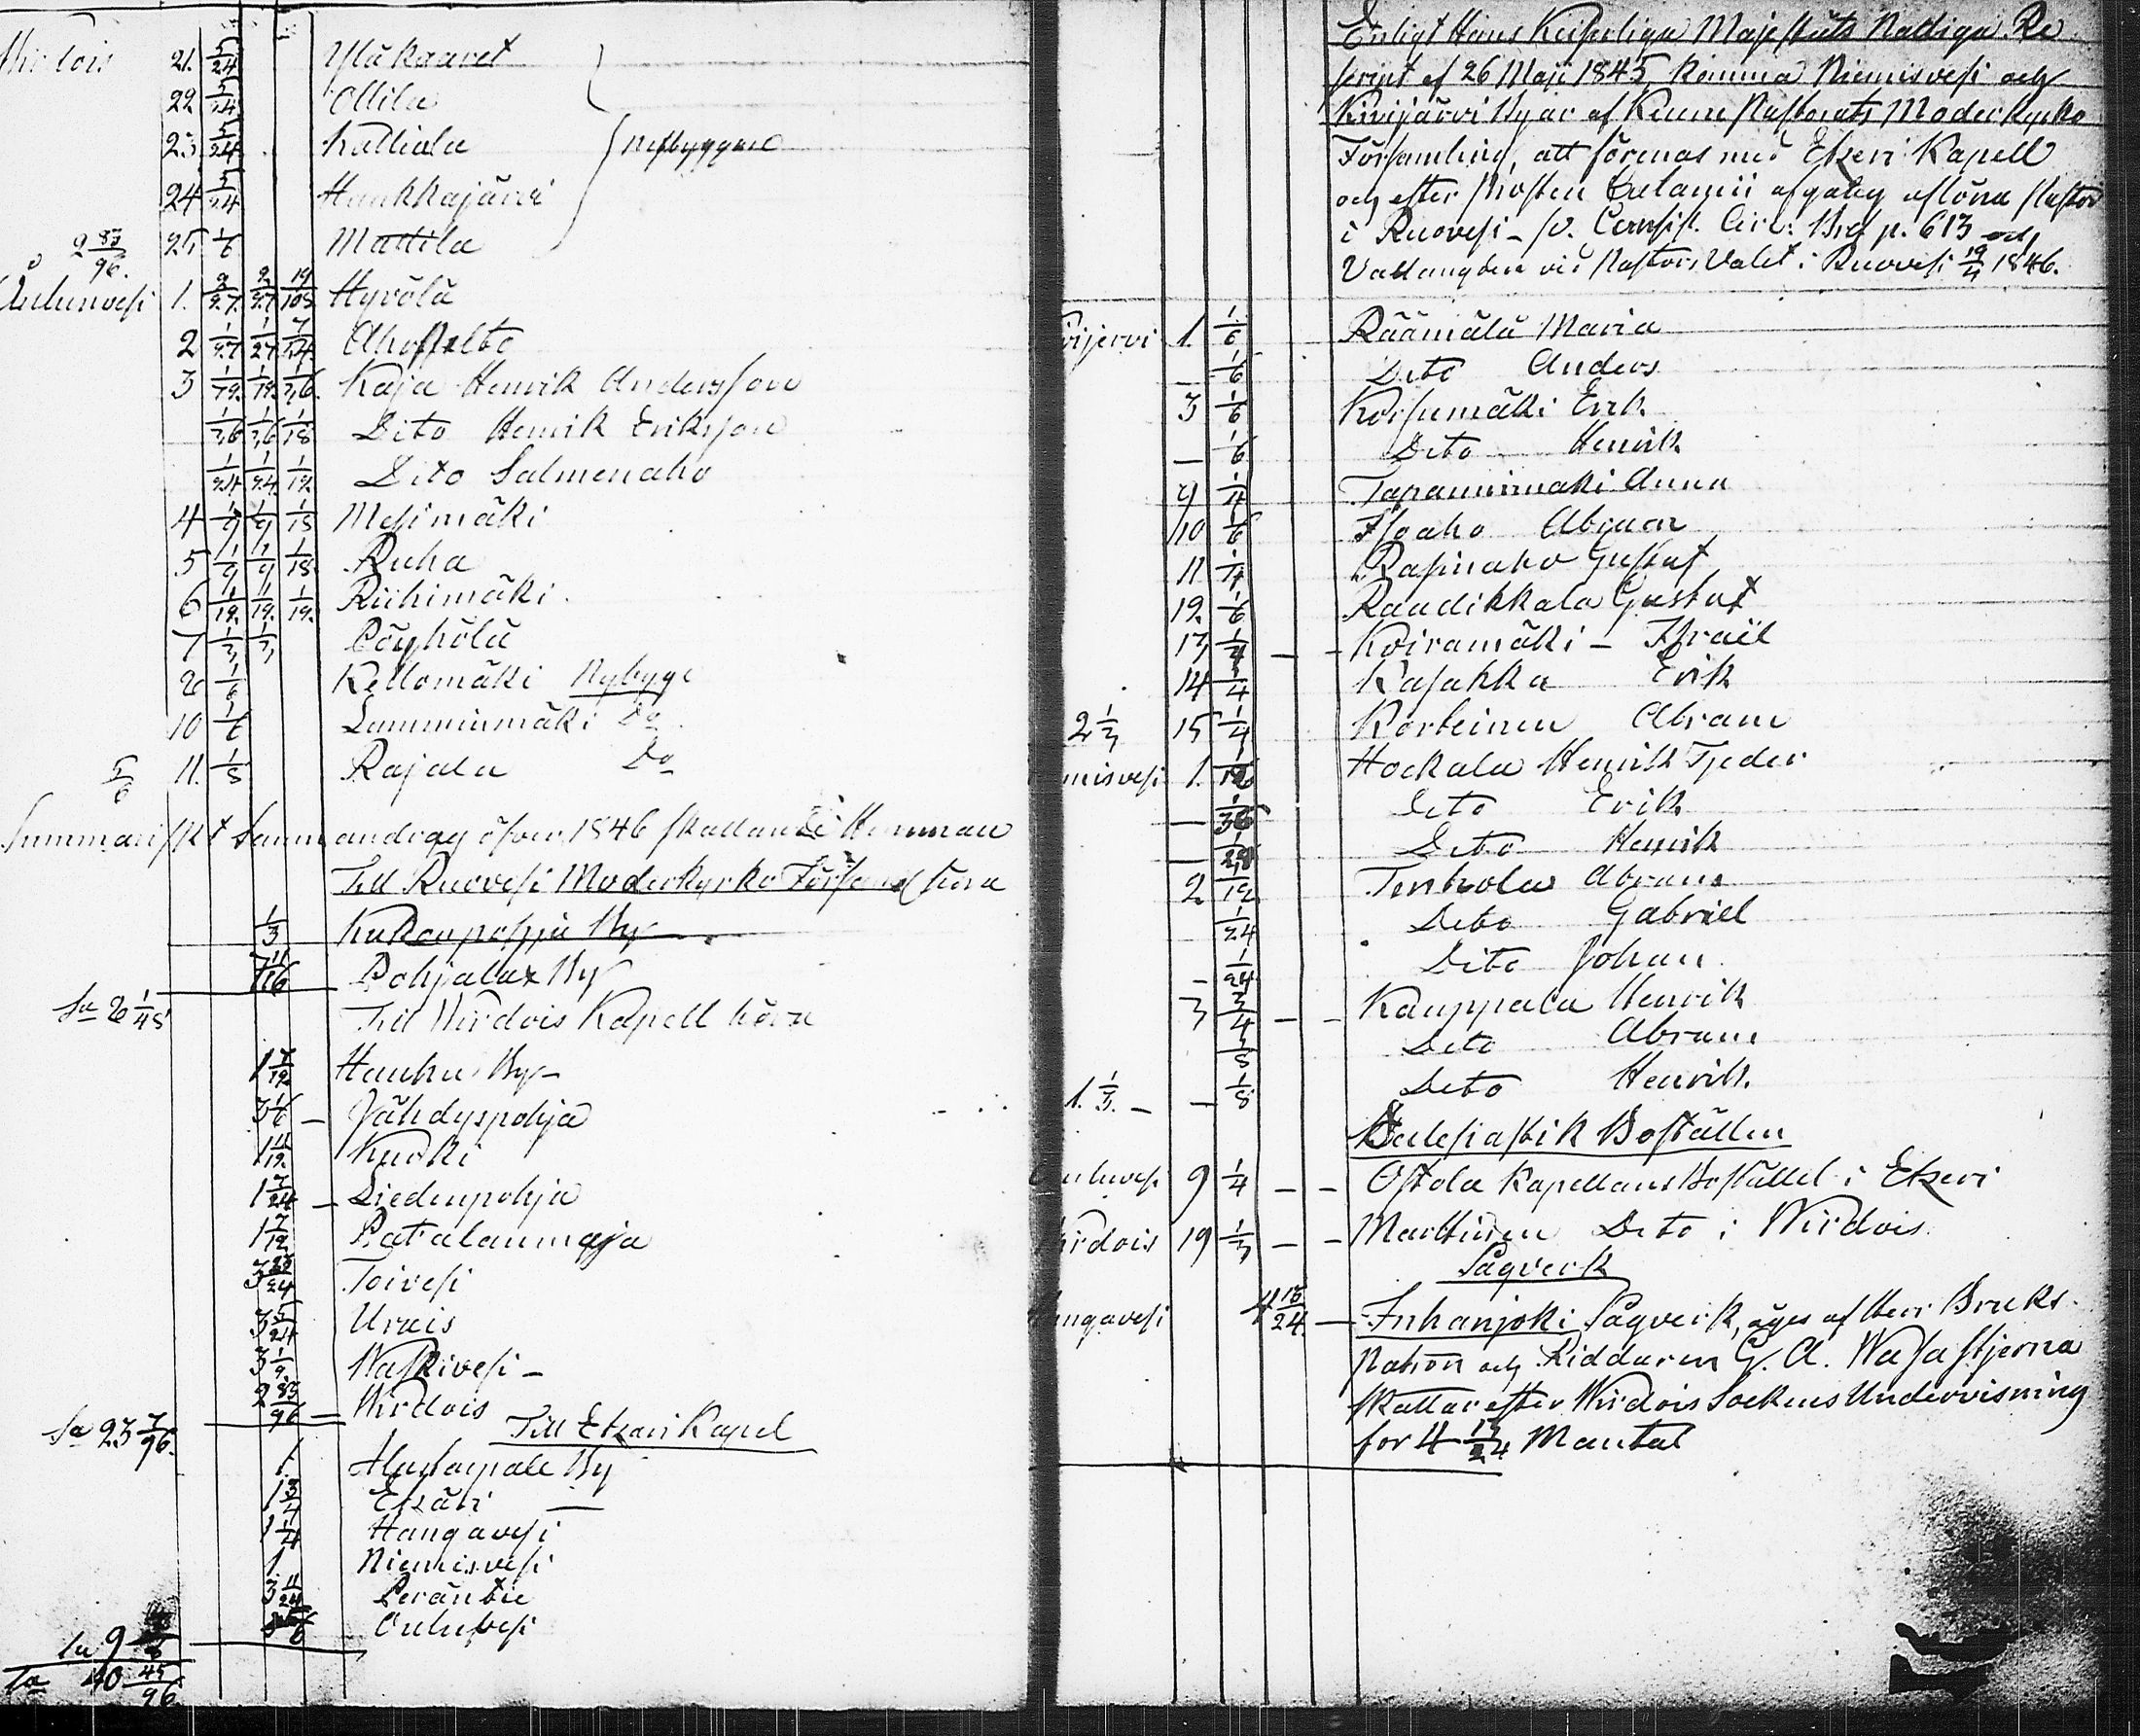 Wirdois 21. 5/24 Yläkaaret
22 5/24 Ollila
23 5/24 Kalliala Nybyggen
24 5/24 Hankkajärvi
2 83/96. 25 1/6 Mattila
Ouluvesi 1. 2/27. 2/27 19/108 Hyvölä
2 1/27 1/27 Aho
3 1/12. 1/12. 1/36. Kaja Henrik Andersson
1/36 1/36 1/18 Dito Henrik Eriksson
1/24 1/24. 1/12. Dito Salmenaho
4 1/9 1/9 1/18 Mesimäki
5 1/9 1/9 1/18. Ruha
6 1/12. 1/12. 1/12. Riihimäki.
7 1/3 1/3 Pöyhölä
8 1/6 Kellomäki Nybygе
10 1/6 Lamminmäki Do.
5/6 11. 1/8 Rajala Do
Summariskt Sammandrag öfver 1846 skattande Hemman
Till Ruovesi Moderkyrko Församl höra
1/3 By
Pohjalax By
Sa 8 1/48 Till Wirdois Kapell höra
1 7/12. Hauhu By –
3 1/6 – Vähdyspohja
1 11/12. Kurki
1 7/24 – Liedenpohja
1 7/12 Patalanmaja
3 23/24 Toivesi
3 5/24 Urais
3 1/9 Waskivesi –
2 83/96 – Wirdois
Sa 23 7/96. Till Etseri Kapel
1. By
1 3/4 Etzäri —
1 1/4 Hangavesi
1 Niemisvesi
3 11/24 Peränbie
5/6 Ouluvesi
Sa 9
Sa 40 45/96
Enligt Hans Kejserliga Majestäts Nadiga Re
script af 26 Maji 1845 komma Niemisvesi och
Kivijärvi Byar af Keuru Pastorats Moderkyrko
Församling, att förenas med Etzeri Kapell
och efter Prosten Calamii afgång aflöna Pastor
i Ruovesi – v. Consist. Circ. Bref p. 613 och
Vallängden vid Pastors Valet i Ruovesi 19/4 1846.
Kivijervi 1. 1/6 Räämälä Maria
— 1/6 Dito Anders
3 1/6 Korsumäki Erik
— 1/6 Dito Henrik
9 1/4 Tapaninmäki Anna
10 1/6 Isoaho Abram
11 1/4 Rasinaho Gustaf
12. 1/6 Raudikkala Gustaf
13 1/4 — – Koiramäki – Israël
14 1/4 Kasakka Erik
2 1/3 15 1/4 Korteinen Abram
Niemisvesi 1. Hockala Henrik Tjeder
— 1/36 Dito Erik
— Dito Henrik
2 1/12 Tenhola Abram
1/24 Dito Gabriel
– 1/24 Dito Johan.
3 3/4 — – Kauppala Henrik
1/8 Dito Abram
1. 1/3. – — 1/8 Dito Henrik.
Ecclesiastik Boställen
Ouluvesi 9 1/4 — – Ostola Kapellans Bostället i Etzeri
Wirdois 19 1/3 — – Marttinen Dito i Wirdois.
Sågverk
Hangavesi 4 13/24. — Inhanjoki Sågverk, äges af Herr Bruks-
Patron och Riddaren G. A. Wasastjerna
skattar efter Wirdois Sockens Undervisning
for 4 13/24 Mantal